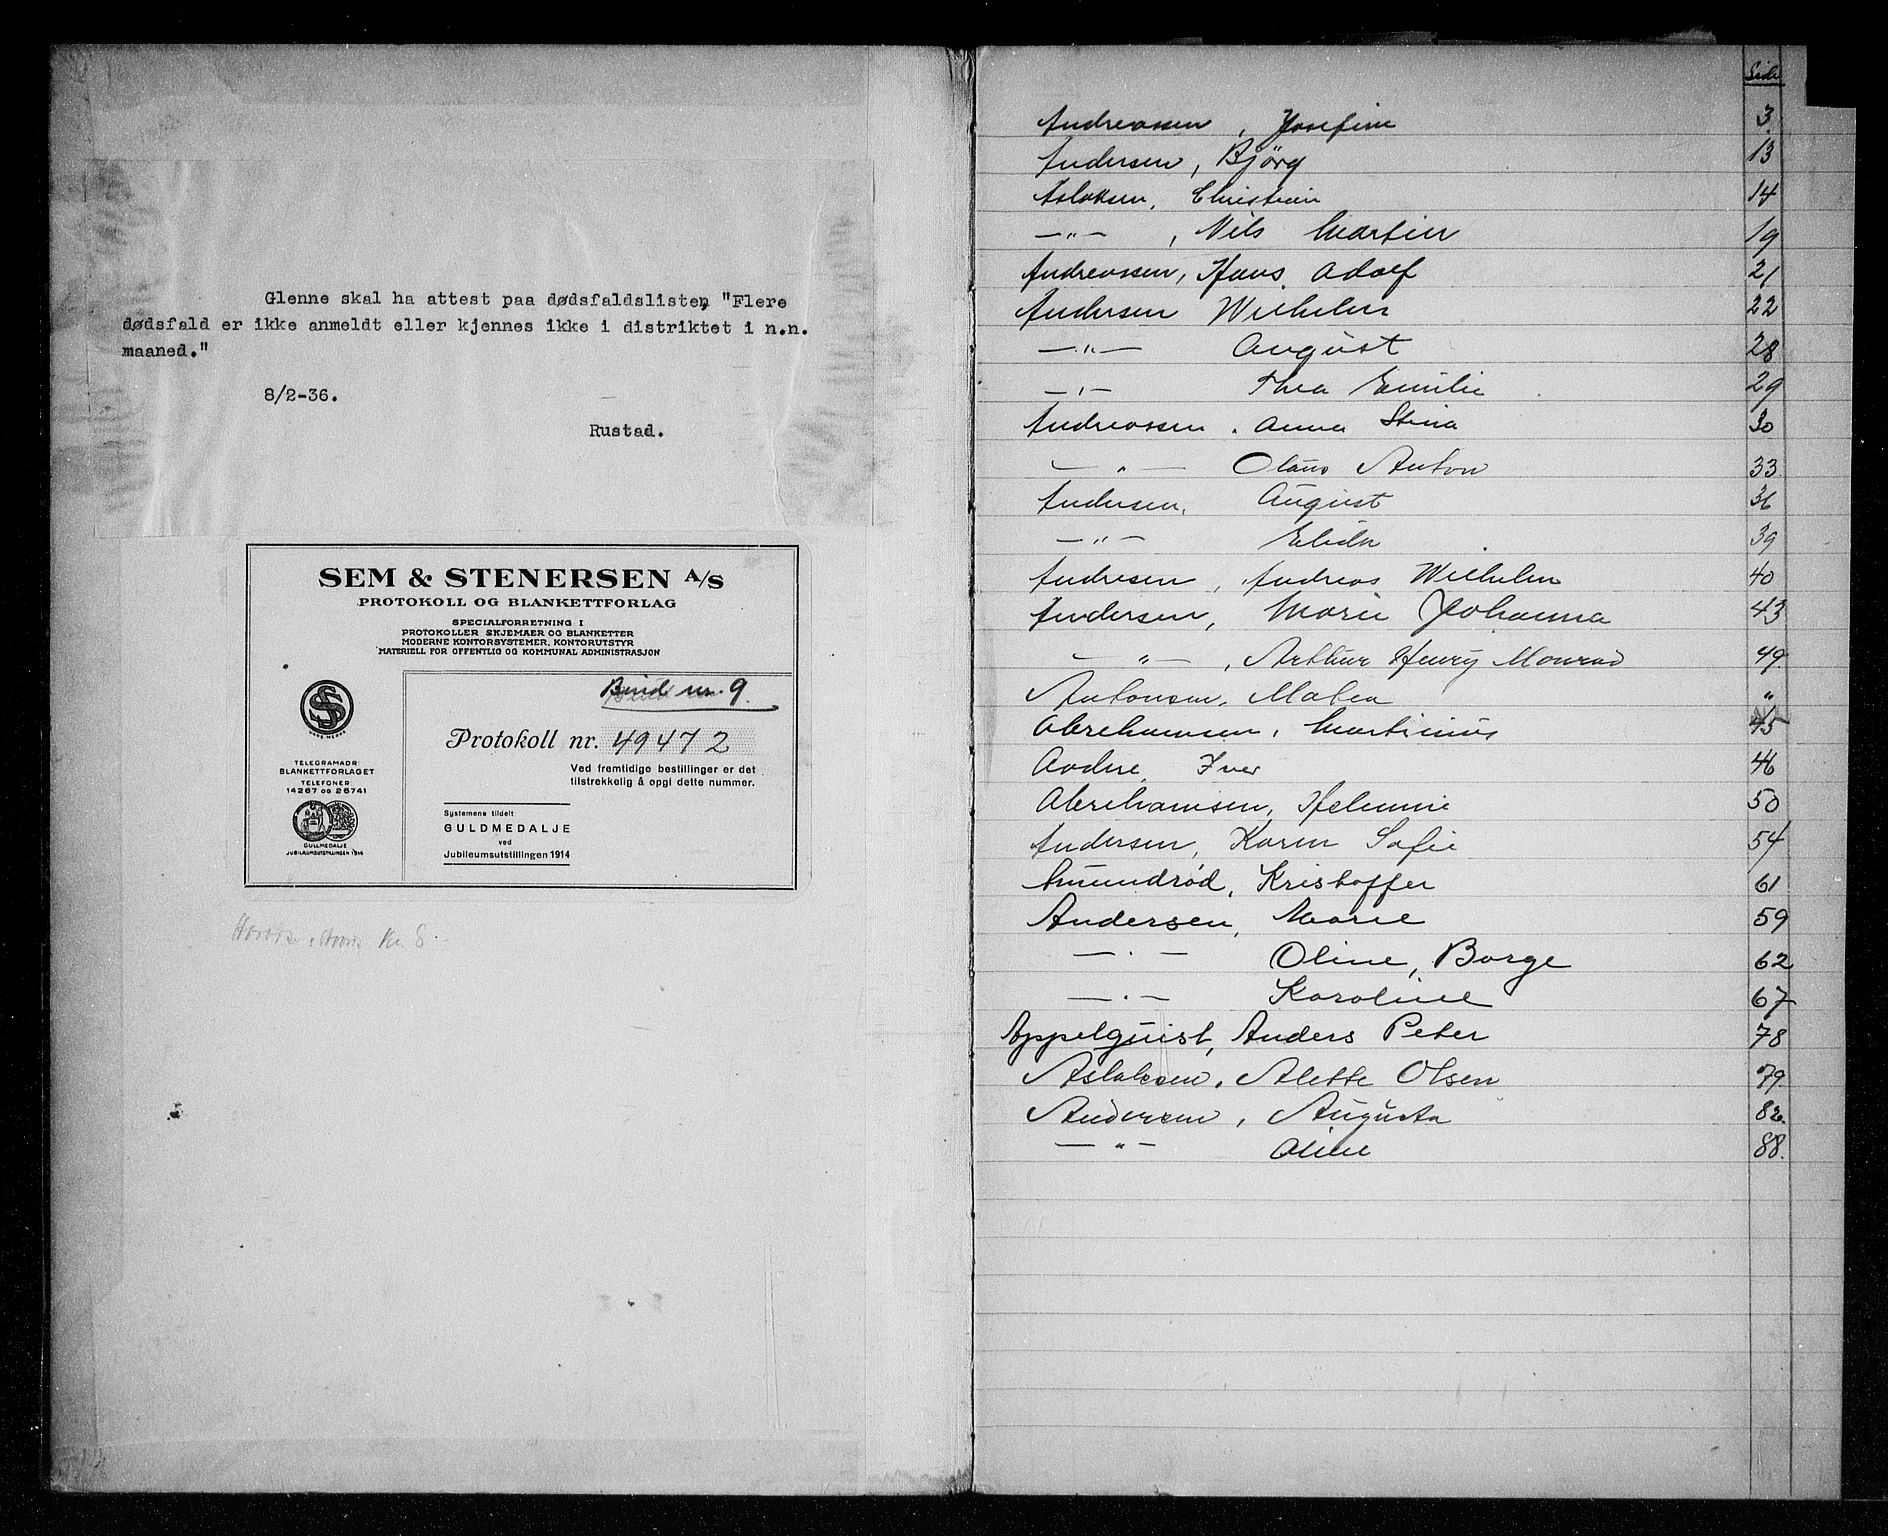 Glenne skal ha attest paa dødsfaldslisten, "Flere
dødsfald er ikke anmeldt eller kjennes ikke i distriktet i n.n.
maaned."
8/2-36.
Rustad.
SEM & STENERSEN A/S
PROTOKOLL OG BLANKETTFORLAG
SPECIALFORRETNING I
PROTOKOLLER SKJEMAER OG BLANKETTER
MODERNE KONTORSYSTEMER, KONTORUTSTYR
MATERIELL FOR OFFENTLIG OG KOMMUNAL ADMINISTRASJON
SS
VARE MERKE
TELEGRAMADR.
BLANKETTFORLAGET
TELEFONER
14267 OG 26741
GULLMEDALJE
JUBILÆUMSUTSTILLINGEN 1914
Bind nr. 9.
Protokoll nr. 49472
Ved fremtidige bestillinger er det
tilstrekkelig å opgi dette nummer.
Systemene tildelt
GULDMEDALJE
ved
Jubileumsutstillingen 1914
Side
Andreassen, Josefine 3.
Andersen, Bjørg 13
Aslaksen, Christian 14
—"— , Nils Martin 19
Andreassen, Hans Adolf 21
Andersen Wilhelm 22
—"— August 28
—"— Thea Emilie 29
Andreassen, Anna Stina 30
—"— Olaus Anton 33.
Andersen, August 36
—"— Elida 39
Andresen, Andreas Wilhelm 40
Andersen, Marie Johanna 43
—"— , Arthur Henry Monrad 49.
Antonsen, Matea "
Abrahamsen, Martinius 45
Iver 46
Abrahamsen, Helmine 50
Andersen, Karen Sofie 54
Amundrød, Kristoffer 61
Andersen, Marie 59
—"— Oline, Borge 62
—"— Karoline 67
Appelquist, Anders Peter 78
Aslaksen, Alette Olsen 79.
Andersen, Augusta 82.
—"— Oline 88.